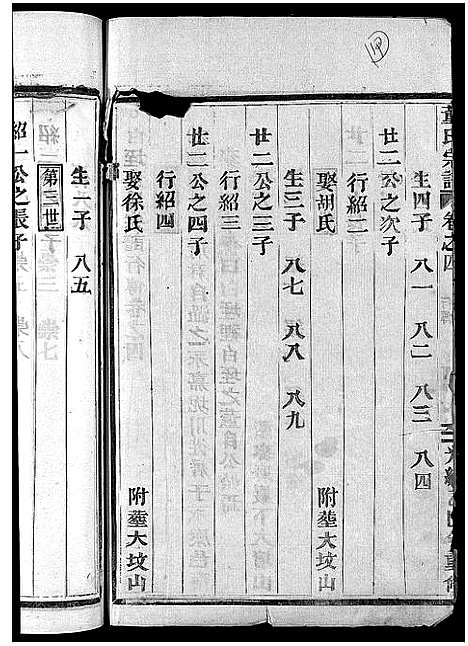 董氏宗譜 卷之四
生四子 八一 八二 八三 八四
廿二公之次子
行紹二
娶胡氏 附塟大坟山
生三子 八七 八八 八九
廿二公之三子
行紹三
廿二公之四子
行紹四
娶徐氏 附塟大坟山
生一子 八五
第三世
紹一公之長子